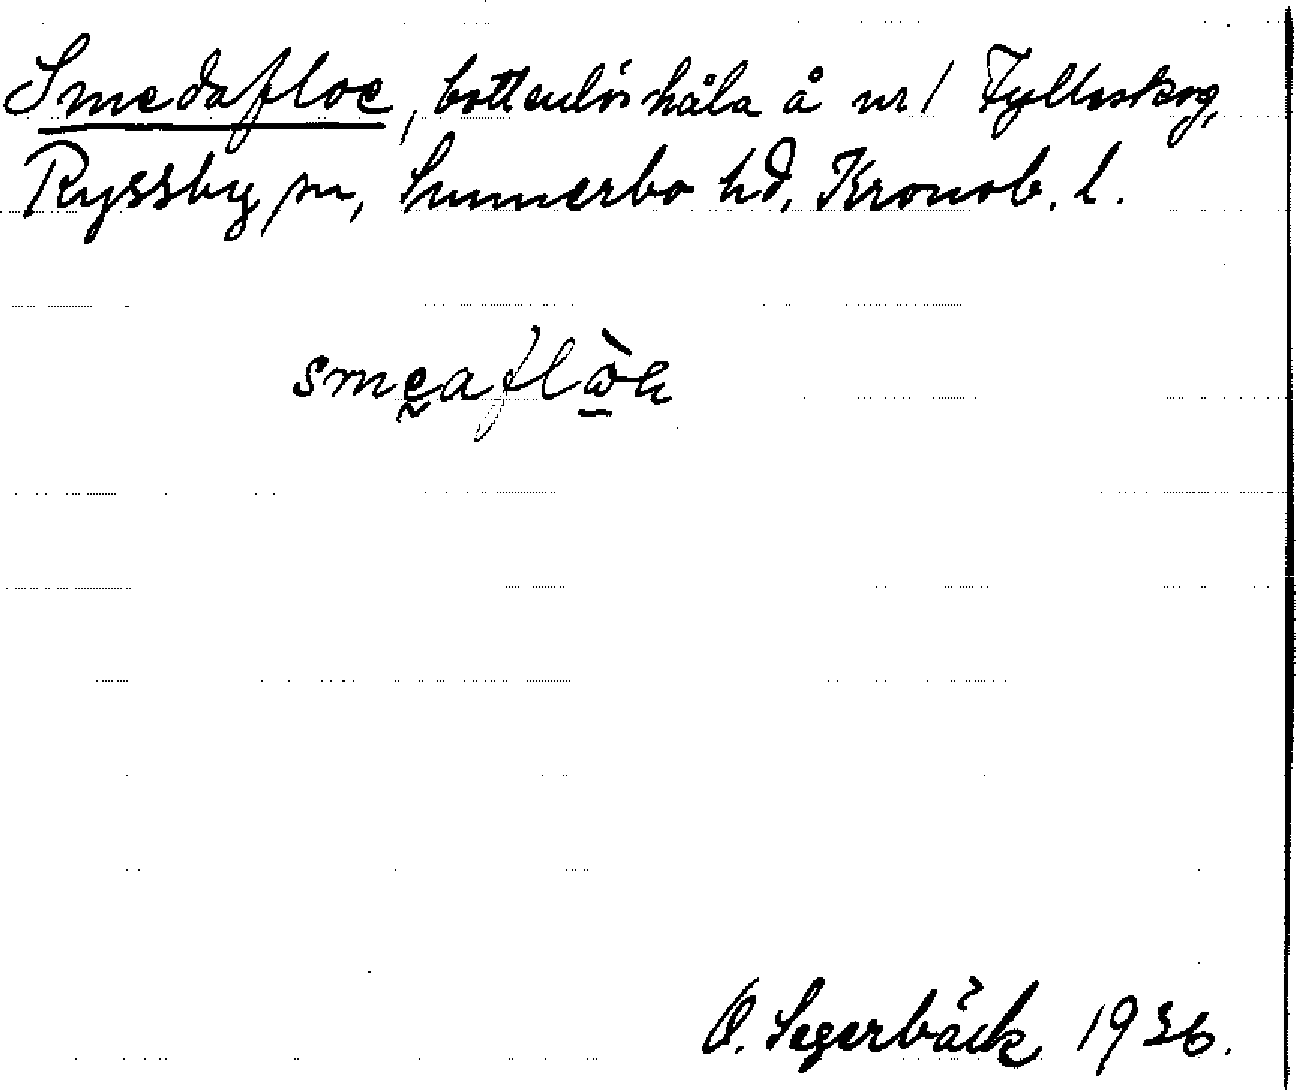 Smedafloe, bottenlös håla å nr 1 Fylleskog,
Ryssby sn, Sunnerbo hd, Kronob. l.
O. Segerbäck 1936.